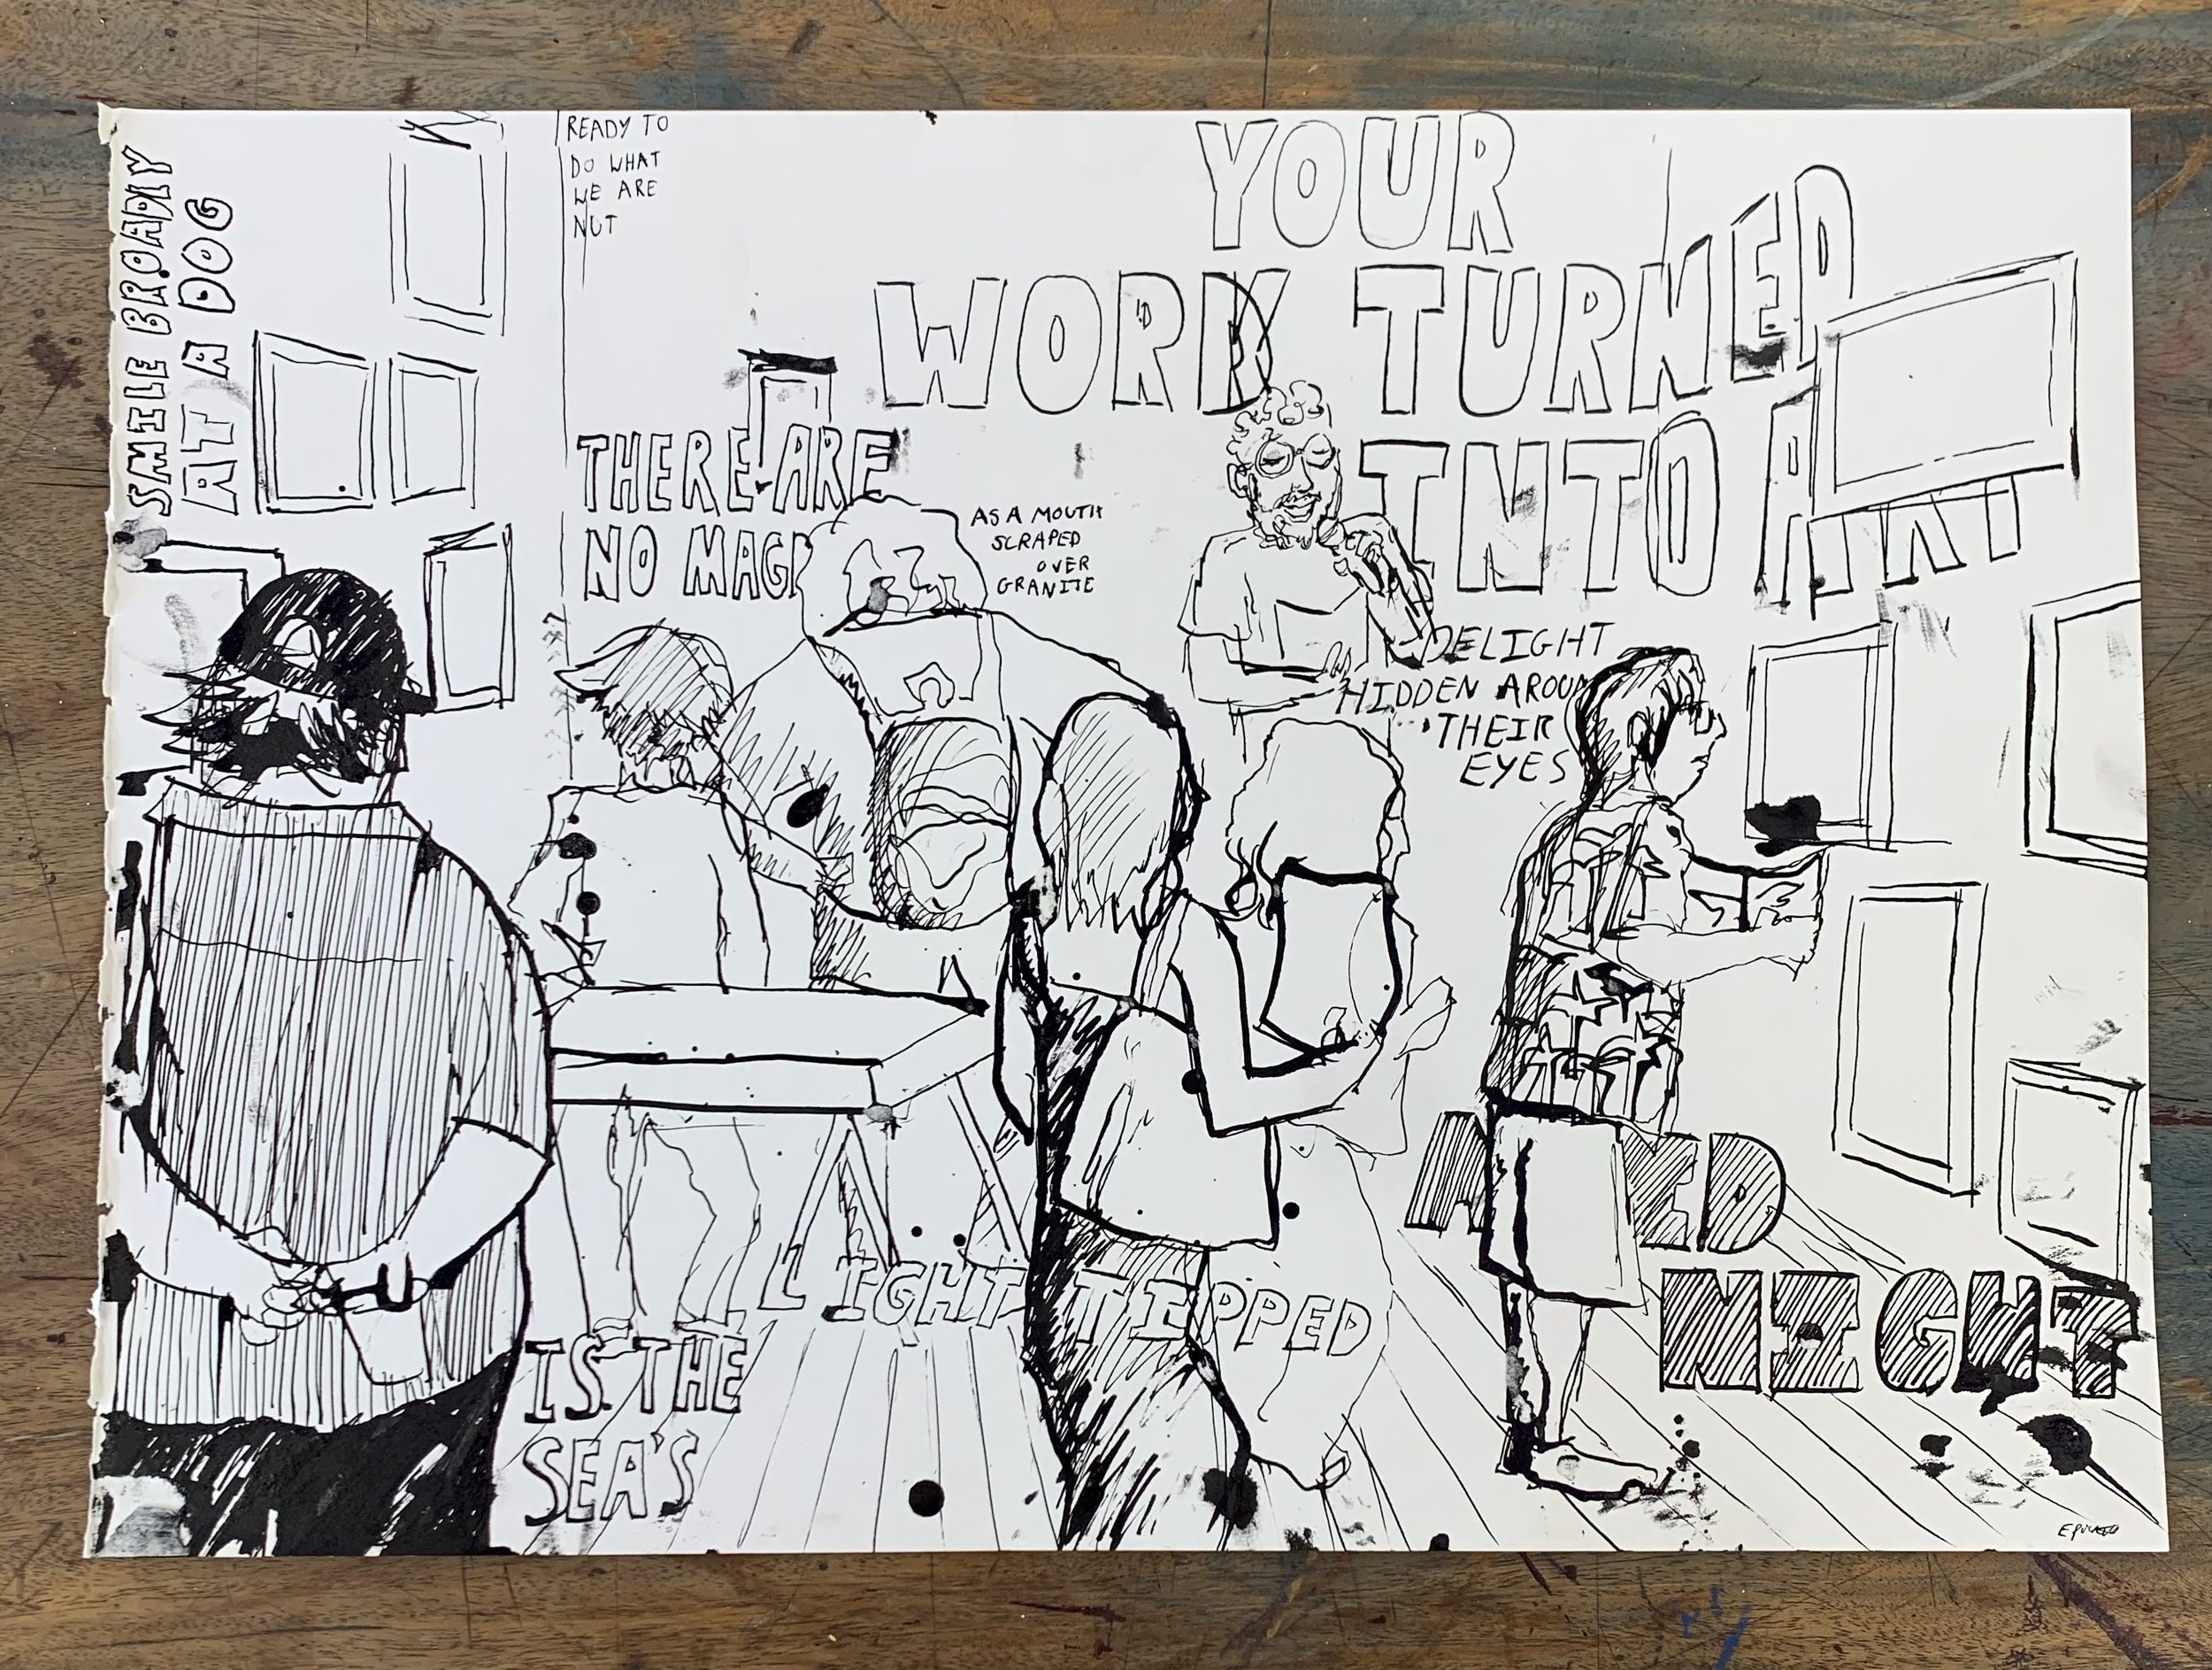 SMILE BROADY
AT A DOG
READY TO
DO WHAT
WE ARE
NOT
YOUR
WORK TURNED
INTO A
THERE ARE
NO MAGI
AS A MOUTH
SCRAPED
OVER
GRANITE
DELIGHT
HIDDEN AROUN
THEIR
EYES
NIGHT
LIGHT TIPPED
IS THE
SEA'S